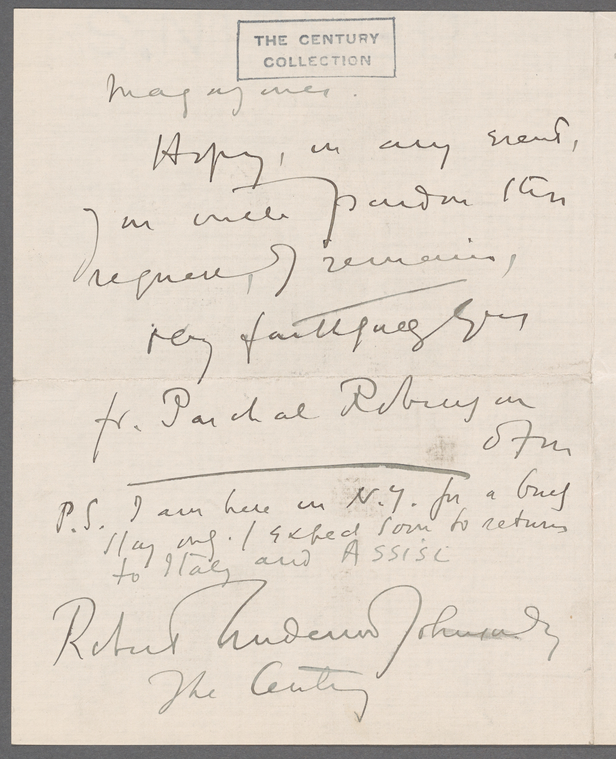 THE CENTURY
COLLECTION
Magazines.
Hoping, in any event,
you will pardon this
request, I remain,
Very faithfully yours
fr. Paschal Robinson
OFM
P.S. I am here in N.Y. for a brief
stay only. I expect soon to return
to Italy and Assisi
Robert Underwood Johnson Esq
The Century